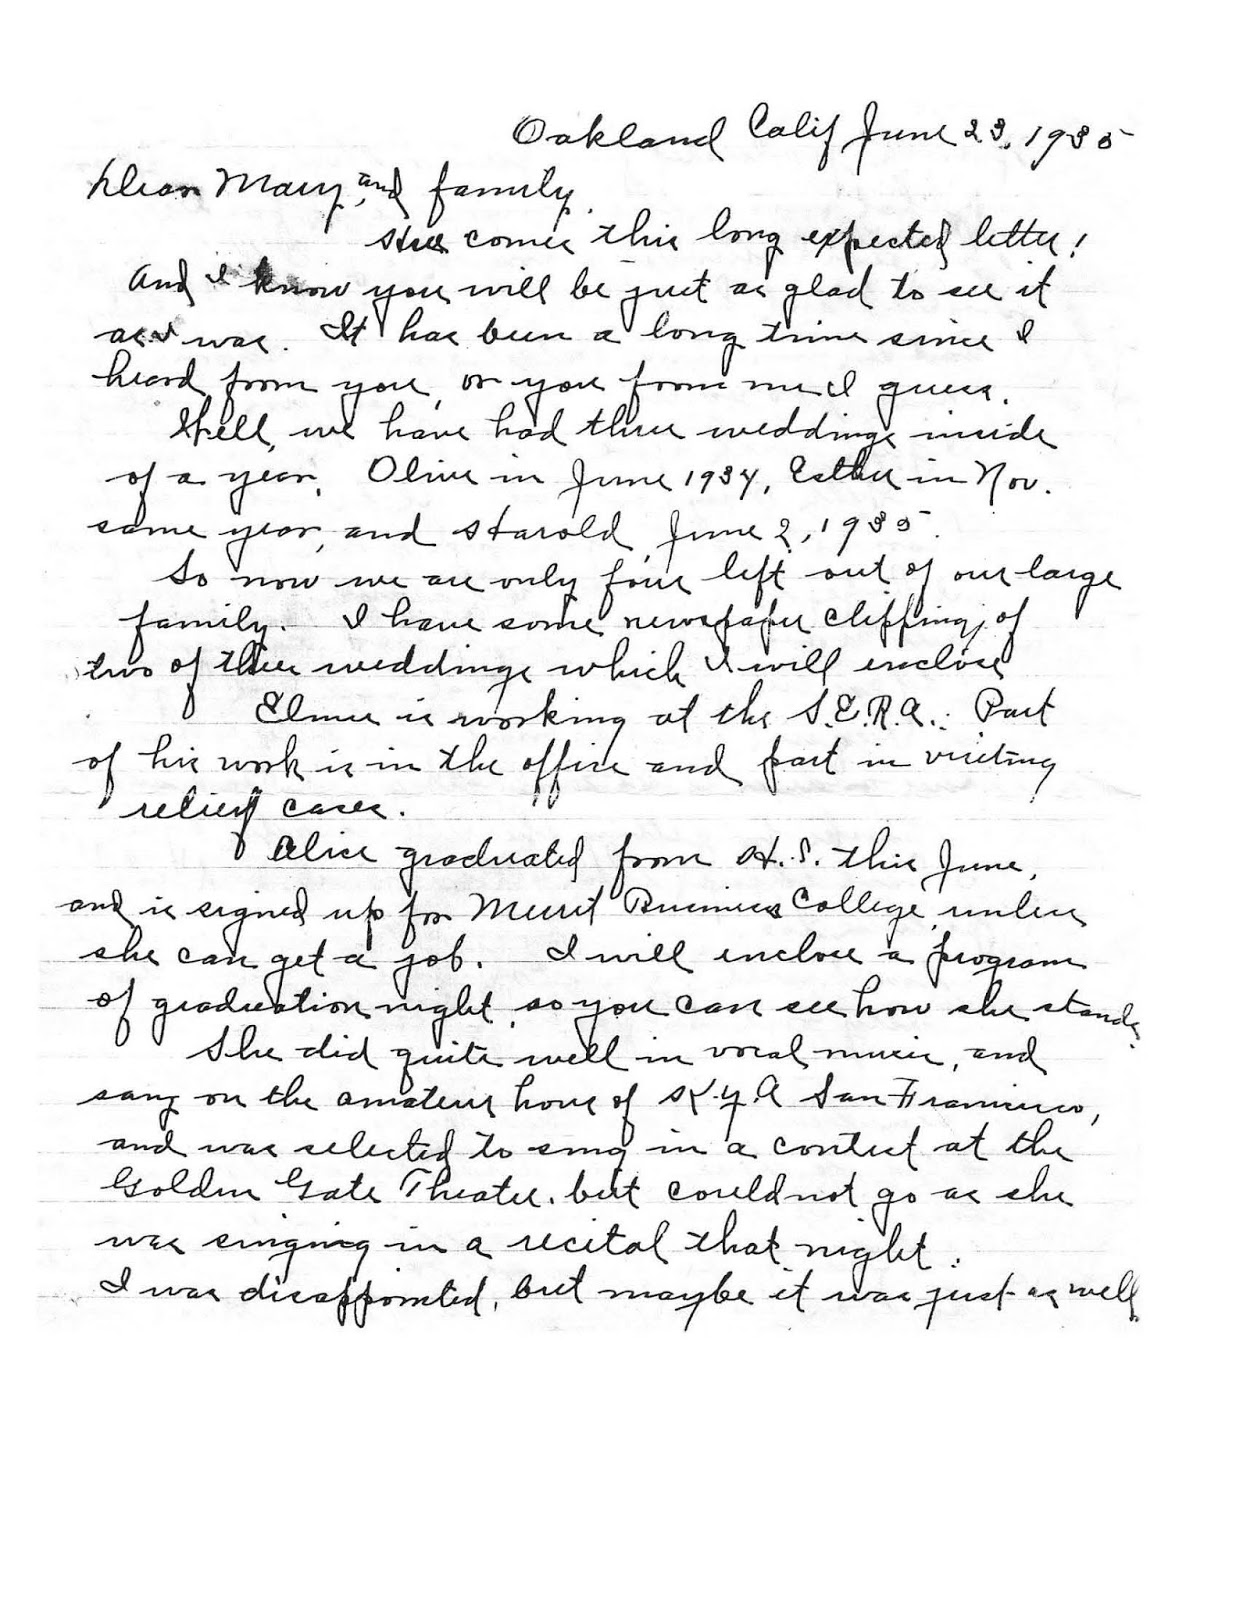 Oakland Calif June 23, 1935
Dear Mary, and family.
Here comes this long expected letter!
And I know you will be just as glad to see it
as I was. It has been a long time since I
heard from you, or you from me I guess.
Well, we have had three weddings inside
of a year, Olive in June 1934, Esther in Nov.
same year, and Harold, June 2, 1935.
So now we are only four left out of our large
family. I have some newspaper clippings of
two of these weddings which I will enclose
Elmer is working at the S.E.R.A. Part
of his work is in the office and part in visiting
relief cases.
Alice graduated from H.S. this June,
and is signed up for Merrit Business College, unless
she can get a job. I will enclose a program
of graduation night, so you can see how she stands.
She did quite well in vocal music, and
sang on the amateur hour of K.Y.A San Francisco,
and was selected to sing in a contest at the
Golden Gate Theater, but could not go as she
was singing in a recital that night.
I was disappointed, but maybe it was just as well